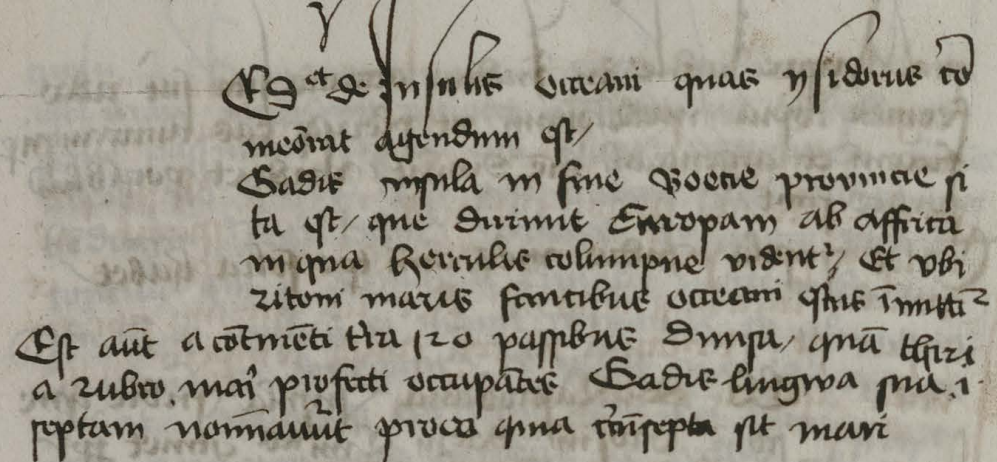 Sed et de Insulis occeani quas ysidorus co
meorat agendum est /
Gadis insula in fine Boecie provincie si
ta est / que dirimit Europam ab affrica
in qua herculis columpne videntr / Et vbi
maris faucibus occeani estus imittir
Est aut a cotineti tra 120 passibus divisa / qua thiri
a rubro mari profecti occupates Gadis lingwa sua i
septam noiavut pro eo qua circusepta sit mari